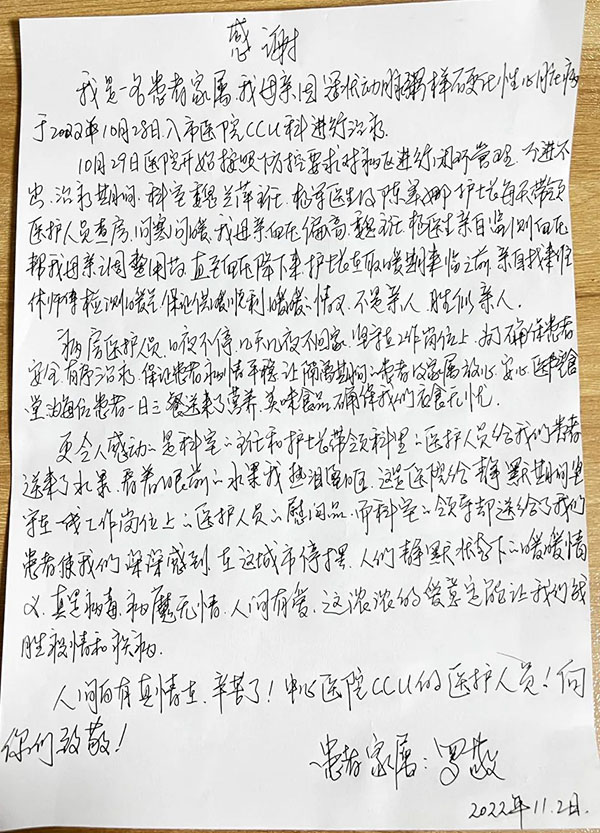 感谢
我是一名患者家属,我母亲因冠状动脉粥样硬化性心脏病
于2022年10月28日入市医院CCU科进行治疗.
10月29日医院开始按照防控要求对病区进行闭环管理,不进不
出,治疗期间,科室魏兰萍主任、杨军医生及陈美娜护士长每天带领
医护人员查房,问寒问暖,我母亲血压偏高,魏主任、杨医生亲自监测血压
帮我母亲调整用药直至血压降下来,护士长在取暖期来临之前,亲自找来维
修师傅检测暖气保证供暖顺利,暖暖情义,不是亲人,胜似亲人.
病房医护人员,日夜不停,几天几夜不回家,坚守在工作岗位上,为了确保患者
安全有序治疗,保证患者病情平稳,让隔离期间的患者及家属放心,安心,医院食
堂为每位患者一日三餐送来了营养、美味食品,确保我们衣食无忧.
更令人感动的是科室的主任和护士长带领科里的医护人员给我们患者
送来了水果,看着眼前的水果我热泪盈眶,这是医院给静默期间坚
守在一线工作岗位上的医护人员的慰问品,而科室的领导却送给了我们
患者使我们深深感到,在这城市停摆,人们静默状态下的暖暖情
义,真是病毒、病魔无情,人间有爱,这浓浓的爱意定能让我们战
胜疫情和疾病.
人间自有真情在,辛苦了!中心医院CCU的医护人员!向
你们致敬!
患者家属:罗敏
2022年11.2日.